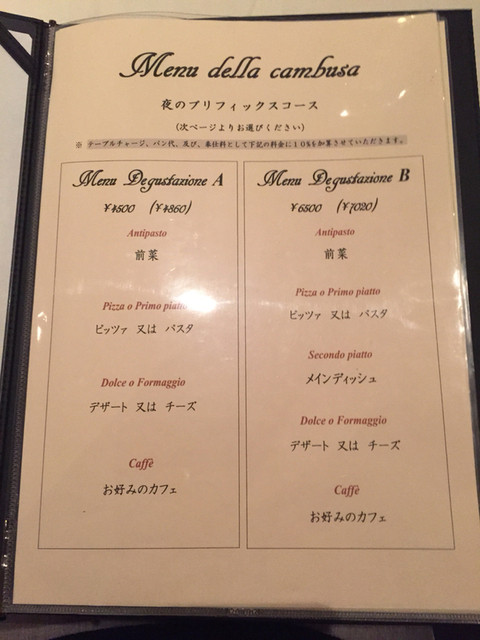 Menu della cambusa
夜のプリフィックスコース
(次ページよりお選びください)
※ テーブルチャージ、パン代、及び、奉仕料として下記の料金に10%を加算させていただきます。
Menu Degustazione A
¥4500 (¥4860)
Antipasto
前菜
Pizza o Primo piatto
ピッツァ 又は パスタ
Dolce o Formaggio
デザート 又は チーズ
Caffè
お好みのカフェ
Menu Degustazione B
¥6500 (¥7020)
Antipasto
前菜
Pizza o Primo piatto
ピッツァ 又は パスタ
Secondo piatto
メインディッシュ
Dolce o Formaggio
デザート 又は チーズ
Caffè
お好みのカフェ